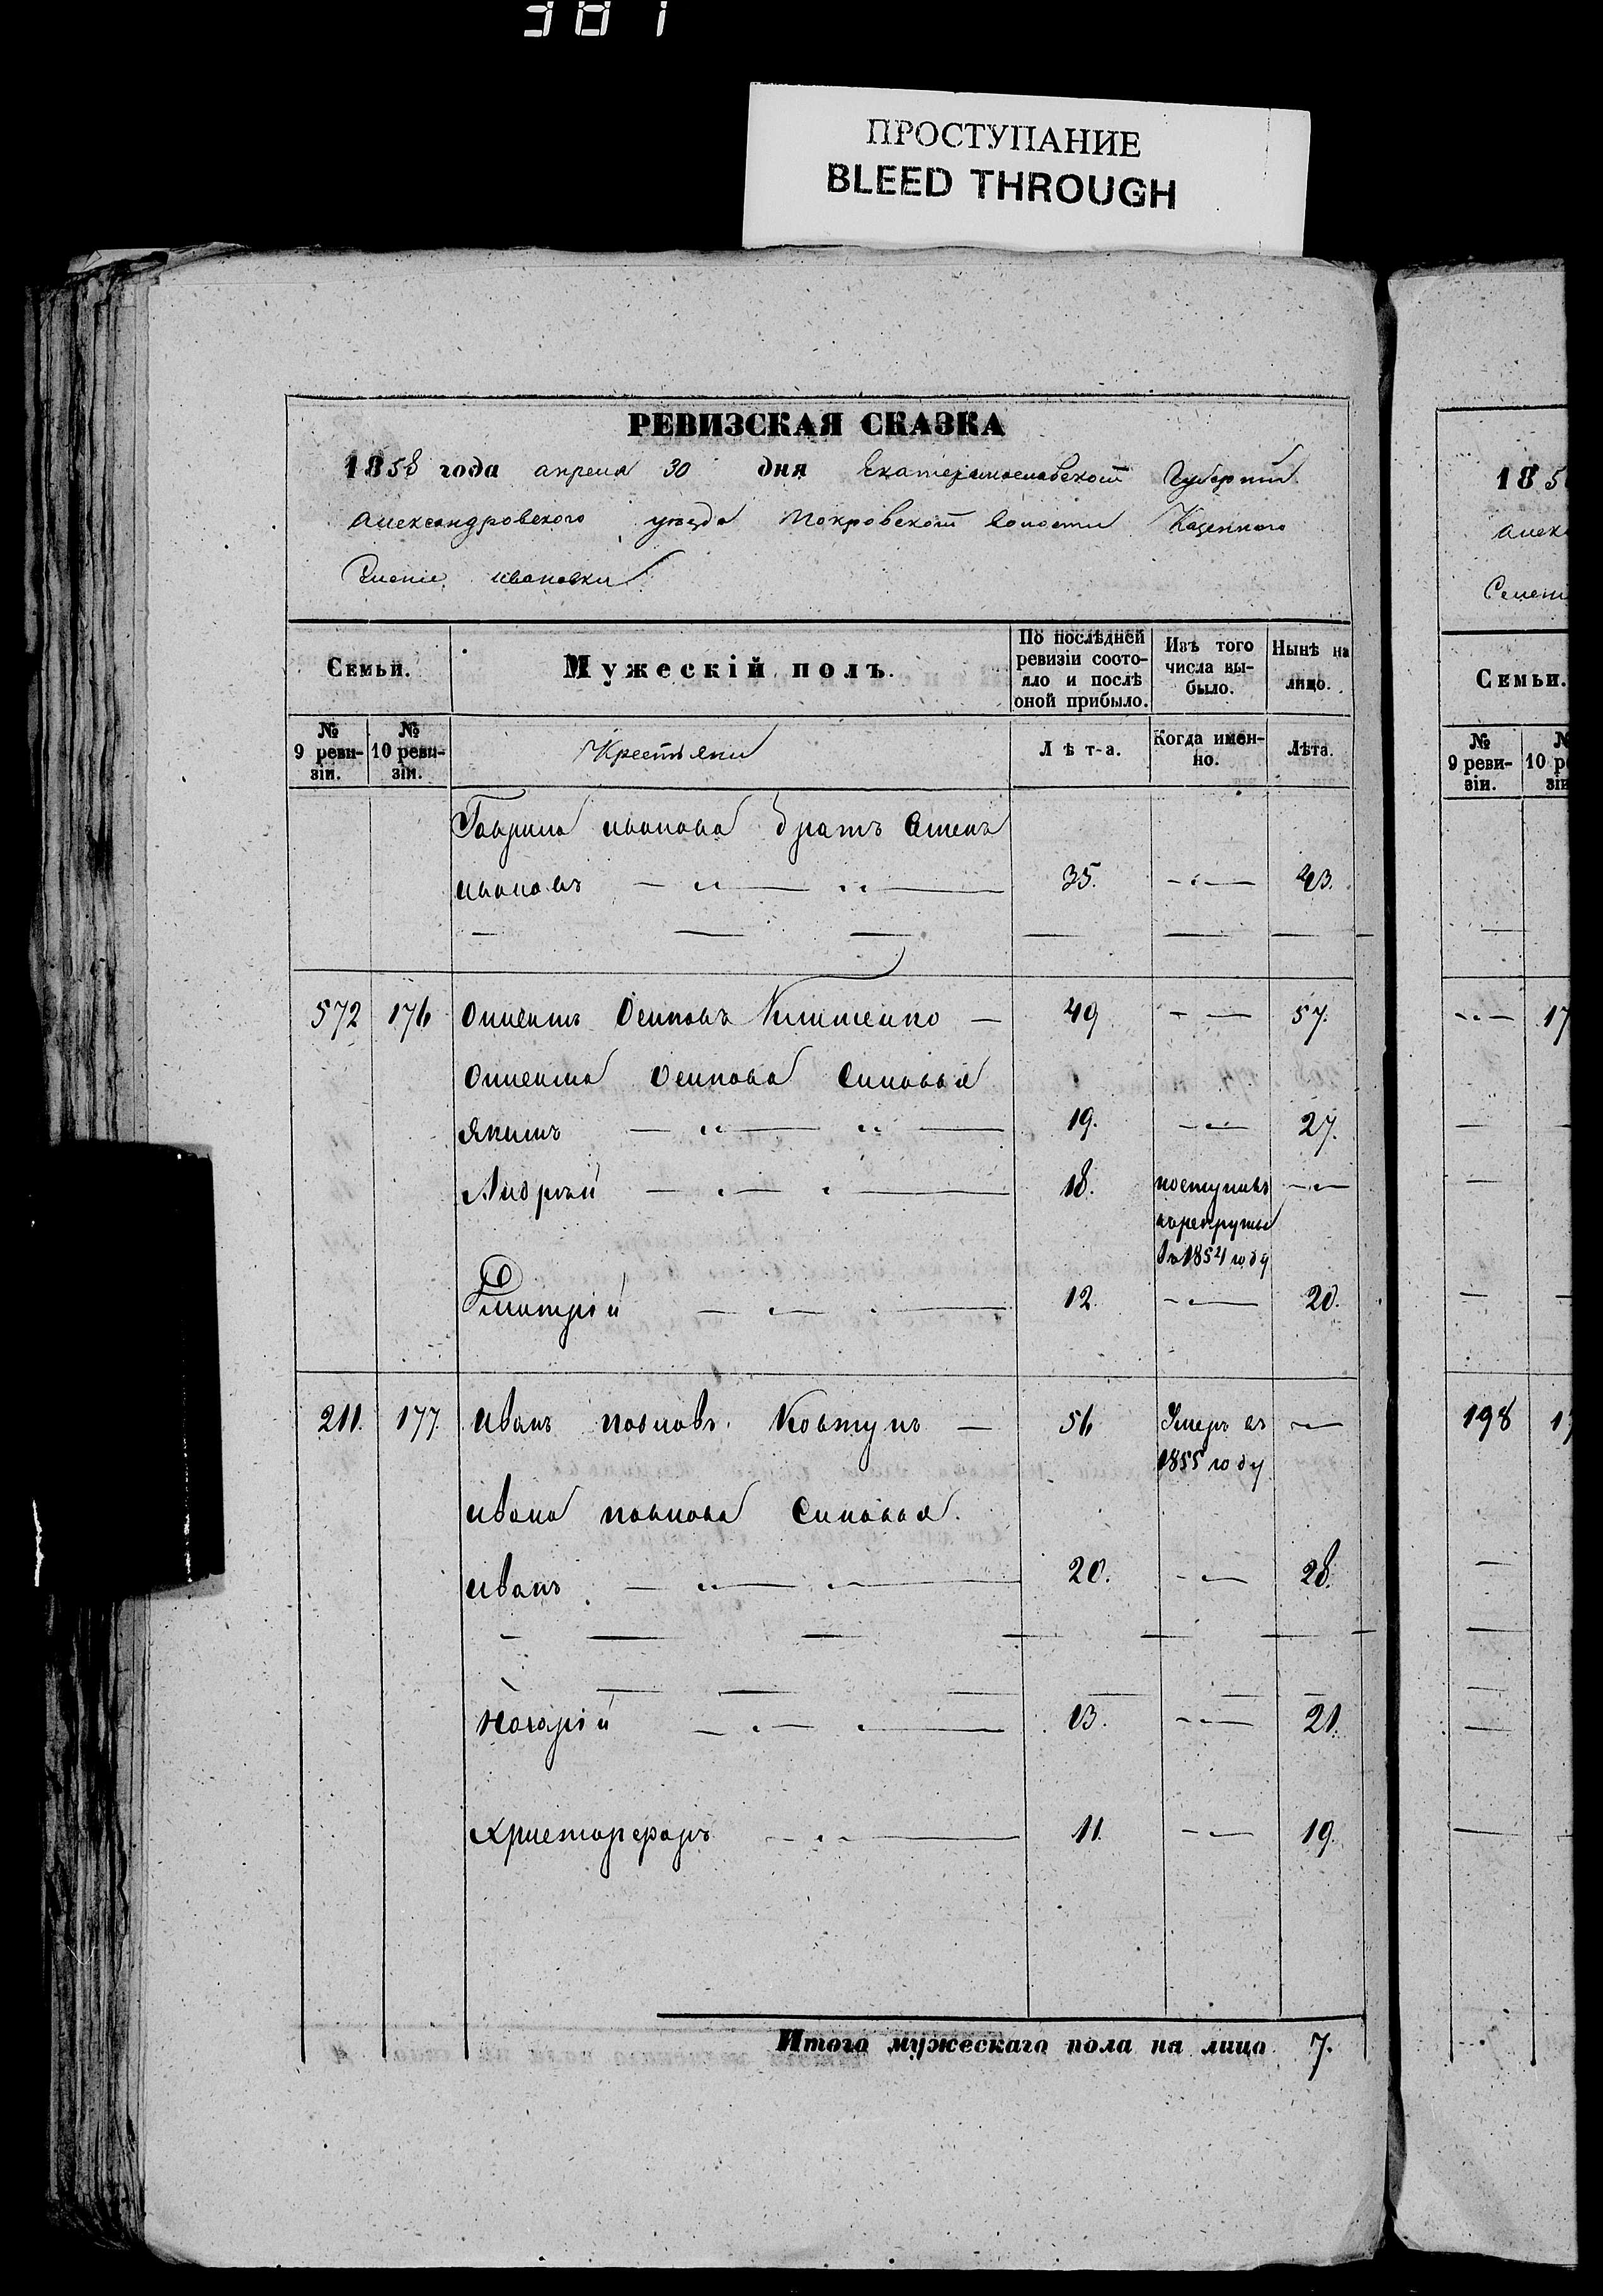 381
ПРОСТУПАНИЕ
BLEED THROUGH
РЕВИЗСКАЯ СКАЗКА
1858 года апреля 30 дня Екатеринославской Губернии
Александровского уезда Покровской волости Казенного
ивановки
Семьи.
Мужескій полъ.
По послѣдней ревизіи состояло и послѣ оной прибыло.
Изъ того числа выбыло.
Нынѣ на лицо.
№ 9 ревизіи.
№ 10 ревизіи.
Крестьяни
Лѣта.
Когда именно.
Лѣта.
Гаврила иванова братъ
ивановъ — 35. — 43.
572 176 Осиповъ — 49 — 57.
Осипова Синовья
Якимъ — 19. — 27.
Андрей — 18. поступивъ
врекруты
в 1854 году
Дмитрій — 12. — 20.
211. 177. иванъ павловъ Ковтунъ — 56 Умеръ въ —
1855 году
ивана павлова Синовья.
иванъ — 20. — 28.
13. — 21.
Христофоръ — 11. — 19.
Итого мужескаго пола на лицо 7.
185
Семьи.
№ 9 ревизіи.
17
198